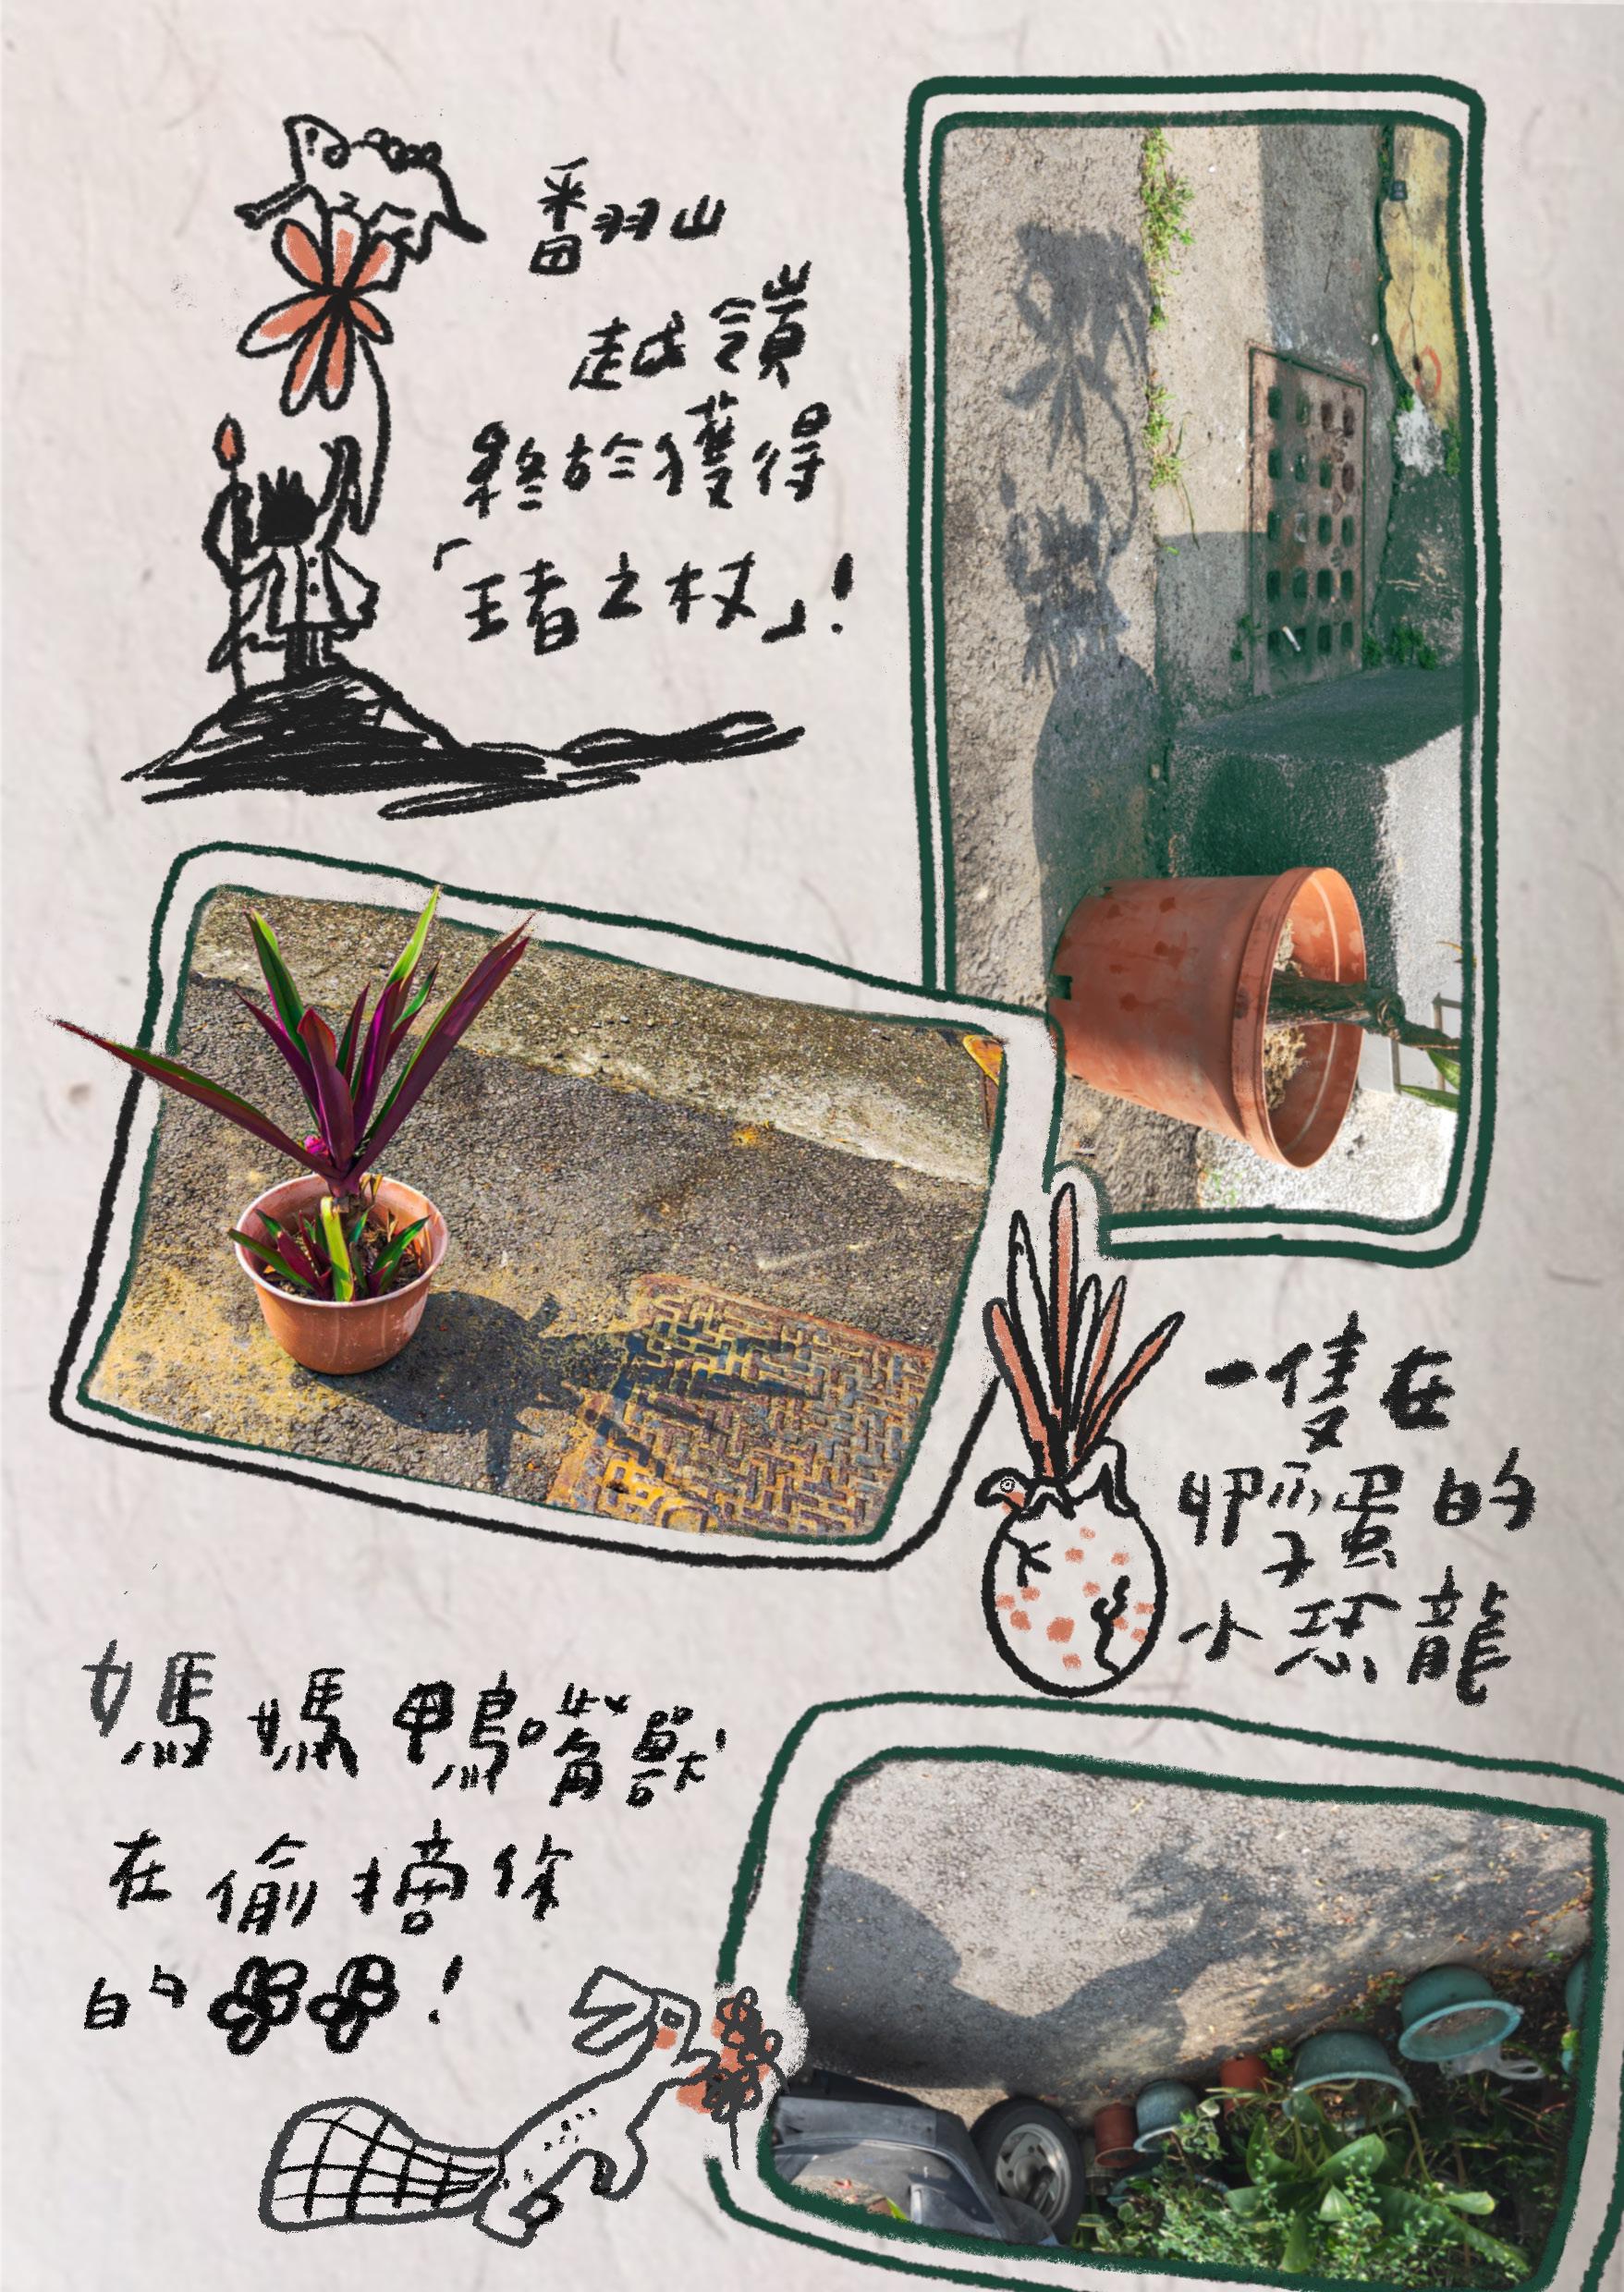 翻山
越嶺
終於獲得
「王者之杖」!
一隻在
孵蛋的
小恐龍
媽媽鴨嘴獸
在偷摘你
的!